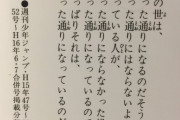 の世は、
った通りになるのだそう
った通りにはならないよ
ている人が、
った通りにならなかった
ぱりそれは、
った通りになっているのだ
●週刊少年ジャンプ・H15年47号
52号・H16年6・7合併号掲載分